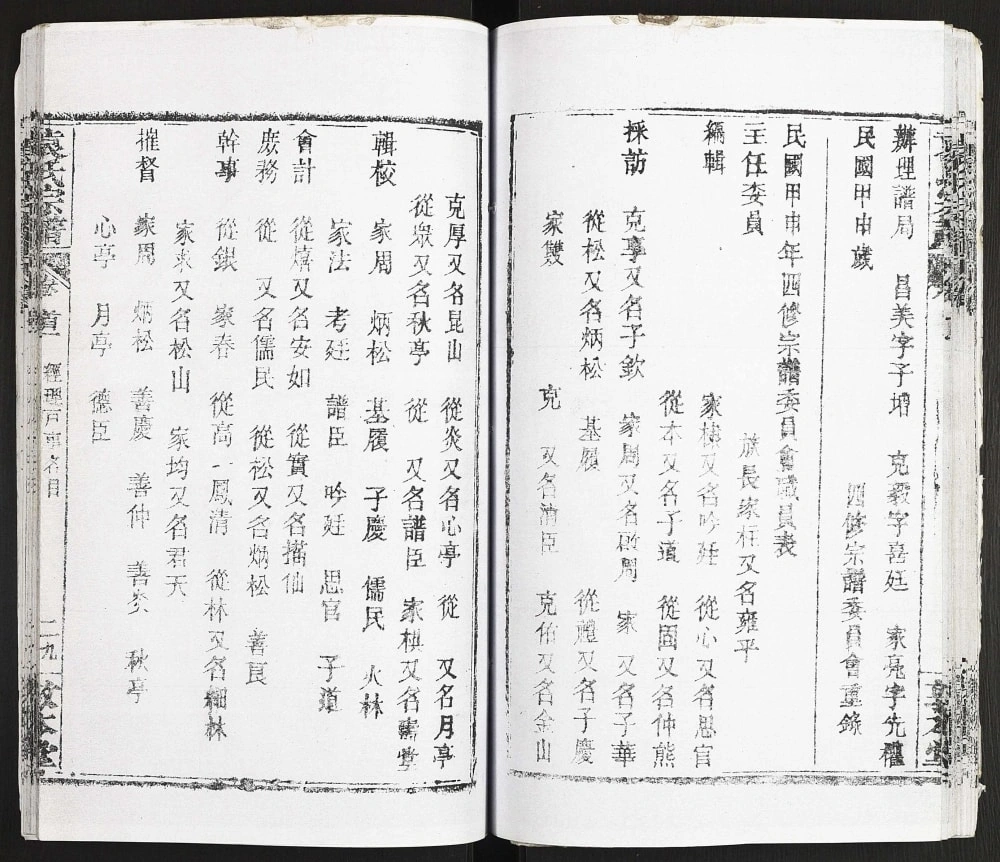 辦理譜局 昌美字子增 克毅字喜廷 家亮字先禮
民國甲申歲 四修宗譜委員會重錄
民國甲申年四修宗譜委員會職員表
主任委員 族長家柱又名雍平
編輯 家棣又名吟廷 從心又名思官
從本又名子道 從固又名仲熊
採訪 克享又名子欽 家周又名啟周 家 又名子華
從松又名炳松 基履 從禮又名子慶
家雙 克 又名清臣 克佑又名金山
克厚又名昆山 從炎又名心亭 從 又名月亭
從眾又名秋亭 從 又名譜臣 家棋又名壽堂
輯校 家周 炳松 基履 子慶 儒民 火林
家法 考廷 譜臣 吟廷 思官 子道
會計 從熺又名安如 從實又名描仙
庶務 從 又名儒民 從松又名炳松 善良
幹事 從銀 家春 從高一鳳清 從林又名細林
家求又名松山 家均又名君天
摧督 家周 炳松 善慶 善仲 善炎 秋亭
心亭 月亭 德臣
氏宗譜 卷首 經理戶事名目 二九 敦本堂